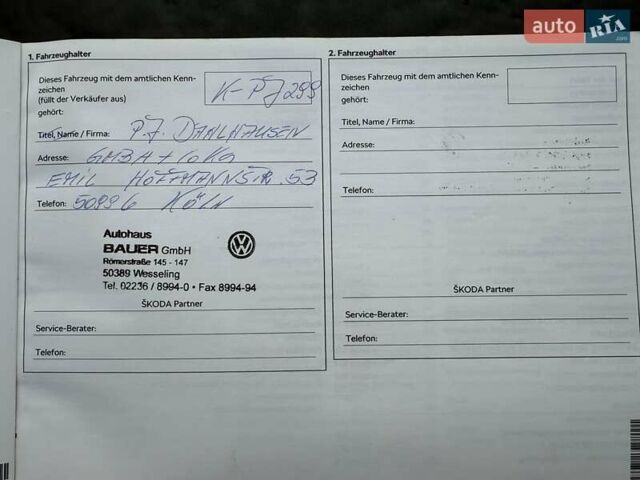 auto RIA .com
1. Fahrzeughalter
Dieses Fahrzeug mit dem amtlichen Kenn-
zeichen
(füllt der Verkäufer aus)
gehört:
K-PJ 299
Titel, Name / Firma: P.J. DAHLHAUSEN
Adresse: GMBH + CO KG
EMIL HOFFMANNSTR. 53
Telefon: 50996 KÖLN
Autohaus
BAUER GmbH
Römerstraße 145 - 147
50389 Wesseling
Tel. 02236 / 8994-0 • Fax 8994-94
ŠKODA Partner
Service-Berater:
Telefon:
2. Fahrzeughalter
Dieses Fahrzeug mit dem amtlichen Kenn-
zeichen
gehört:
Titel, Name / Firma:
Adresse:
Telefon:
ŠKODA Partner
Service-Berater:
Telefon: